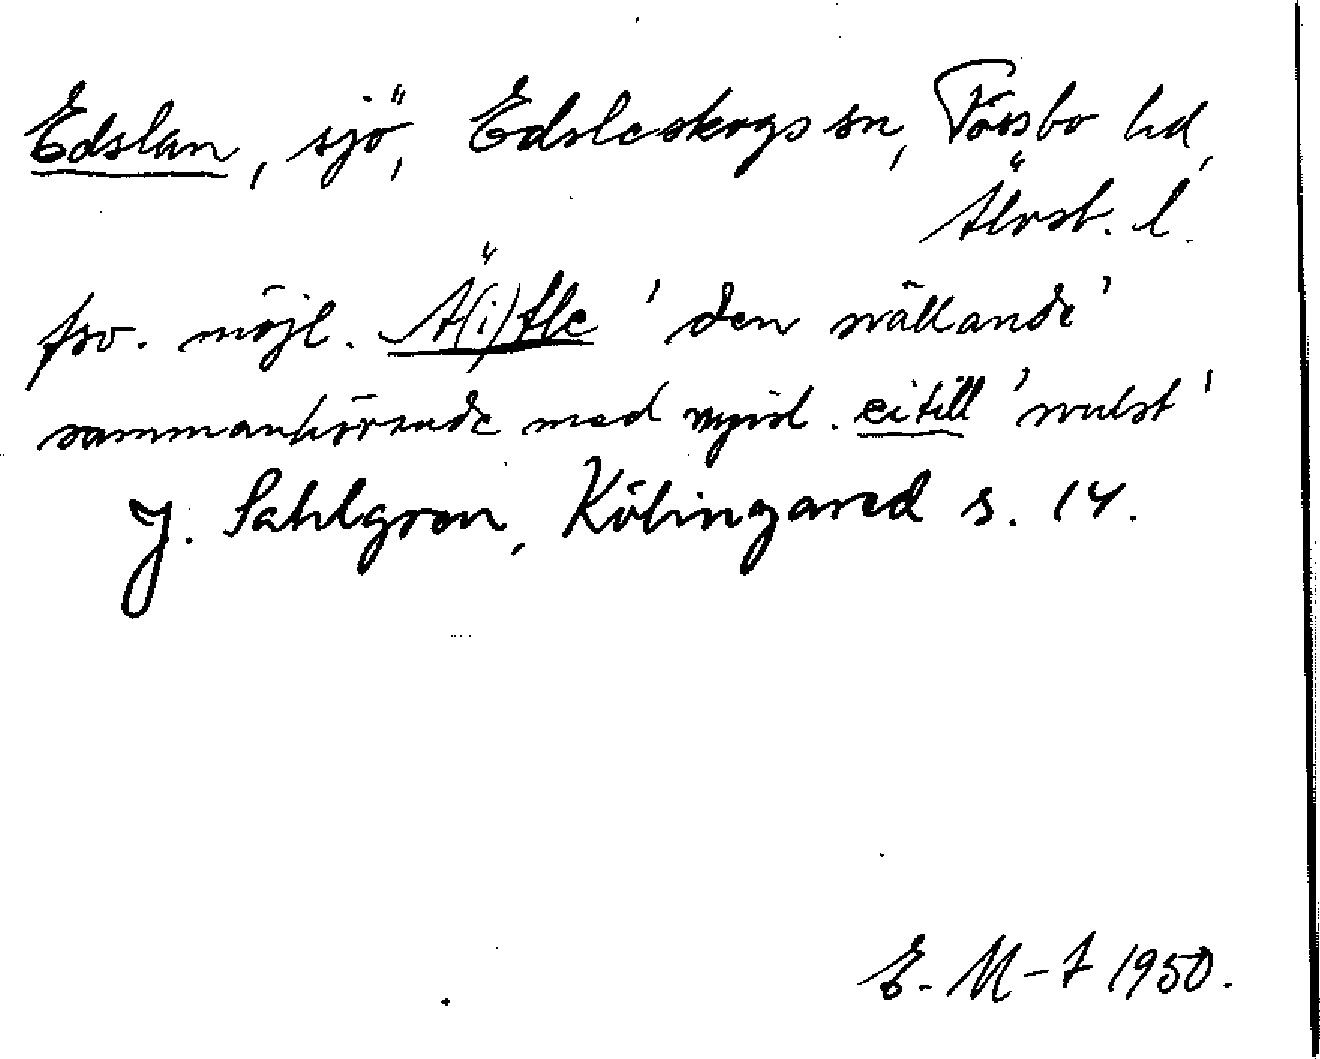 Edslan, sjö, Edsleskogs sn, Tössbo hd,
Älvsb. l.
fsv. möjl. Ä(i)tle 'den svällande'
sammanhörande med nyisl. eitill 'svulst'
J. Sahlgren, Kölingared s. 14.
E. M-t 1950.